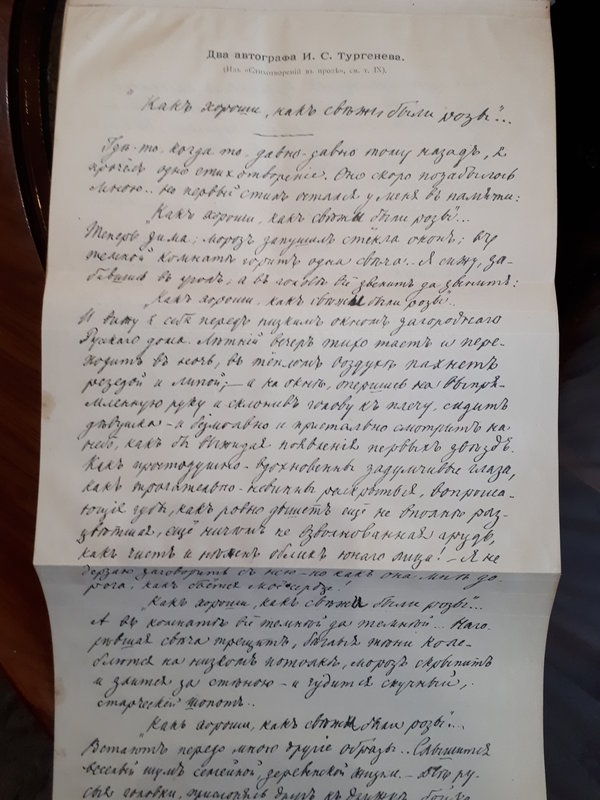 Два автографа И. С. Тургенева.
(Изъ «Стихотвореній въ прозѣ», см. т. IX).
"Какъ хороши, какъ свѣжи были розы"...
Гдѣ-то, когда-то, давно-давно тому назадъ, я
прочёлъ одно стихотвореніе. Оно скоро позабылось
мною.. но первый стихъ остался у меня въ памяти:
Какъ хороши, какъ свѣжи были розы...
Теперь зима; морозъ запушилъ стёкла оконъ; въ
темной комнатѣ горитъ одна свѣча. Я сижу, за-
бившись въ уголъ; а въ головѣ всё звенитъ да звенитъ:
Какъ хороши, какъ свѣжи были розы...
И вижу я себя передъ низкимъ окномъ загороднаго
Русскаго дома. Лѣтній вечеръ тихо таетъ и пере-
ходитъ въ ночь, въ тёпломъ воздухѣ пахнетъ
резедой и липой; — а на окнѣ, опершись на выпря-
мленную руку и склонивъ голову къ плечу, сидитъ
дѣвушка — и безмолвно и пристально смотритъ на
небо, какъ бы выжидая появленія первыхъ звѣздъ.
Какъ простодушно-вдохновенны задумчивые глаза,
какъ трогательно-невинны раскрытыя, вопроша-
ющія губы, какъ ровно дышетъ ещё не вполнѣ рас-
цвѣтшая, ещё ничѣмъ не взволнованная грудь,
какъ чистъ и нѣженъ обликъ юнаго лица! — Я не
дерзаю заговорить съ нею — но какъ она мнѣ до-
рога, какъ бьётся моё сердце!
"Какъ хороши, какъ свѣжи были розы"...
А въ комнатѣ всё темнѣй да темнѣй... Наго-
рѣвшая свѣча трещитъ, бѣглыя тѣни коле-
блются на низкомъ потолкѣ, морозъ скрыпитъ
и злится за стѣною — и чудится скучный,
старческій шопотъ...
"Какъ хороши, какъ свѣжи были розы"...
Встаютъ передо мною другіе образы... Слышится
веселый шумъ семейной деревенской жизни. — Двѣ ру-
сыя головки, прислонясь другъ къ дружкѣ, бойко